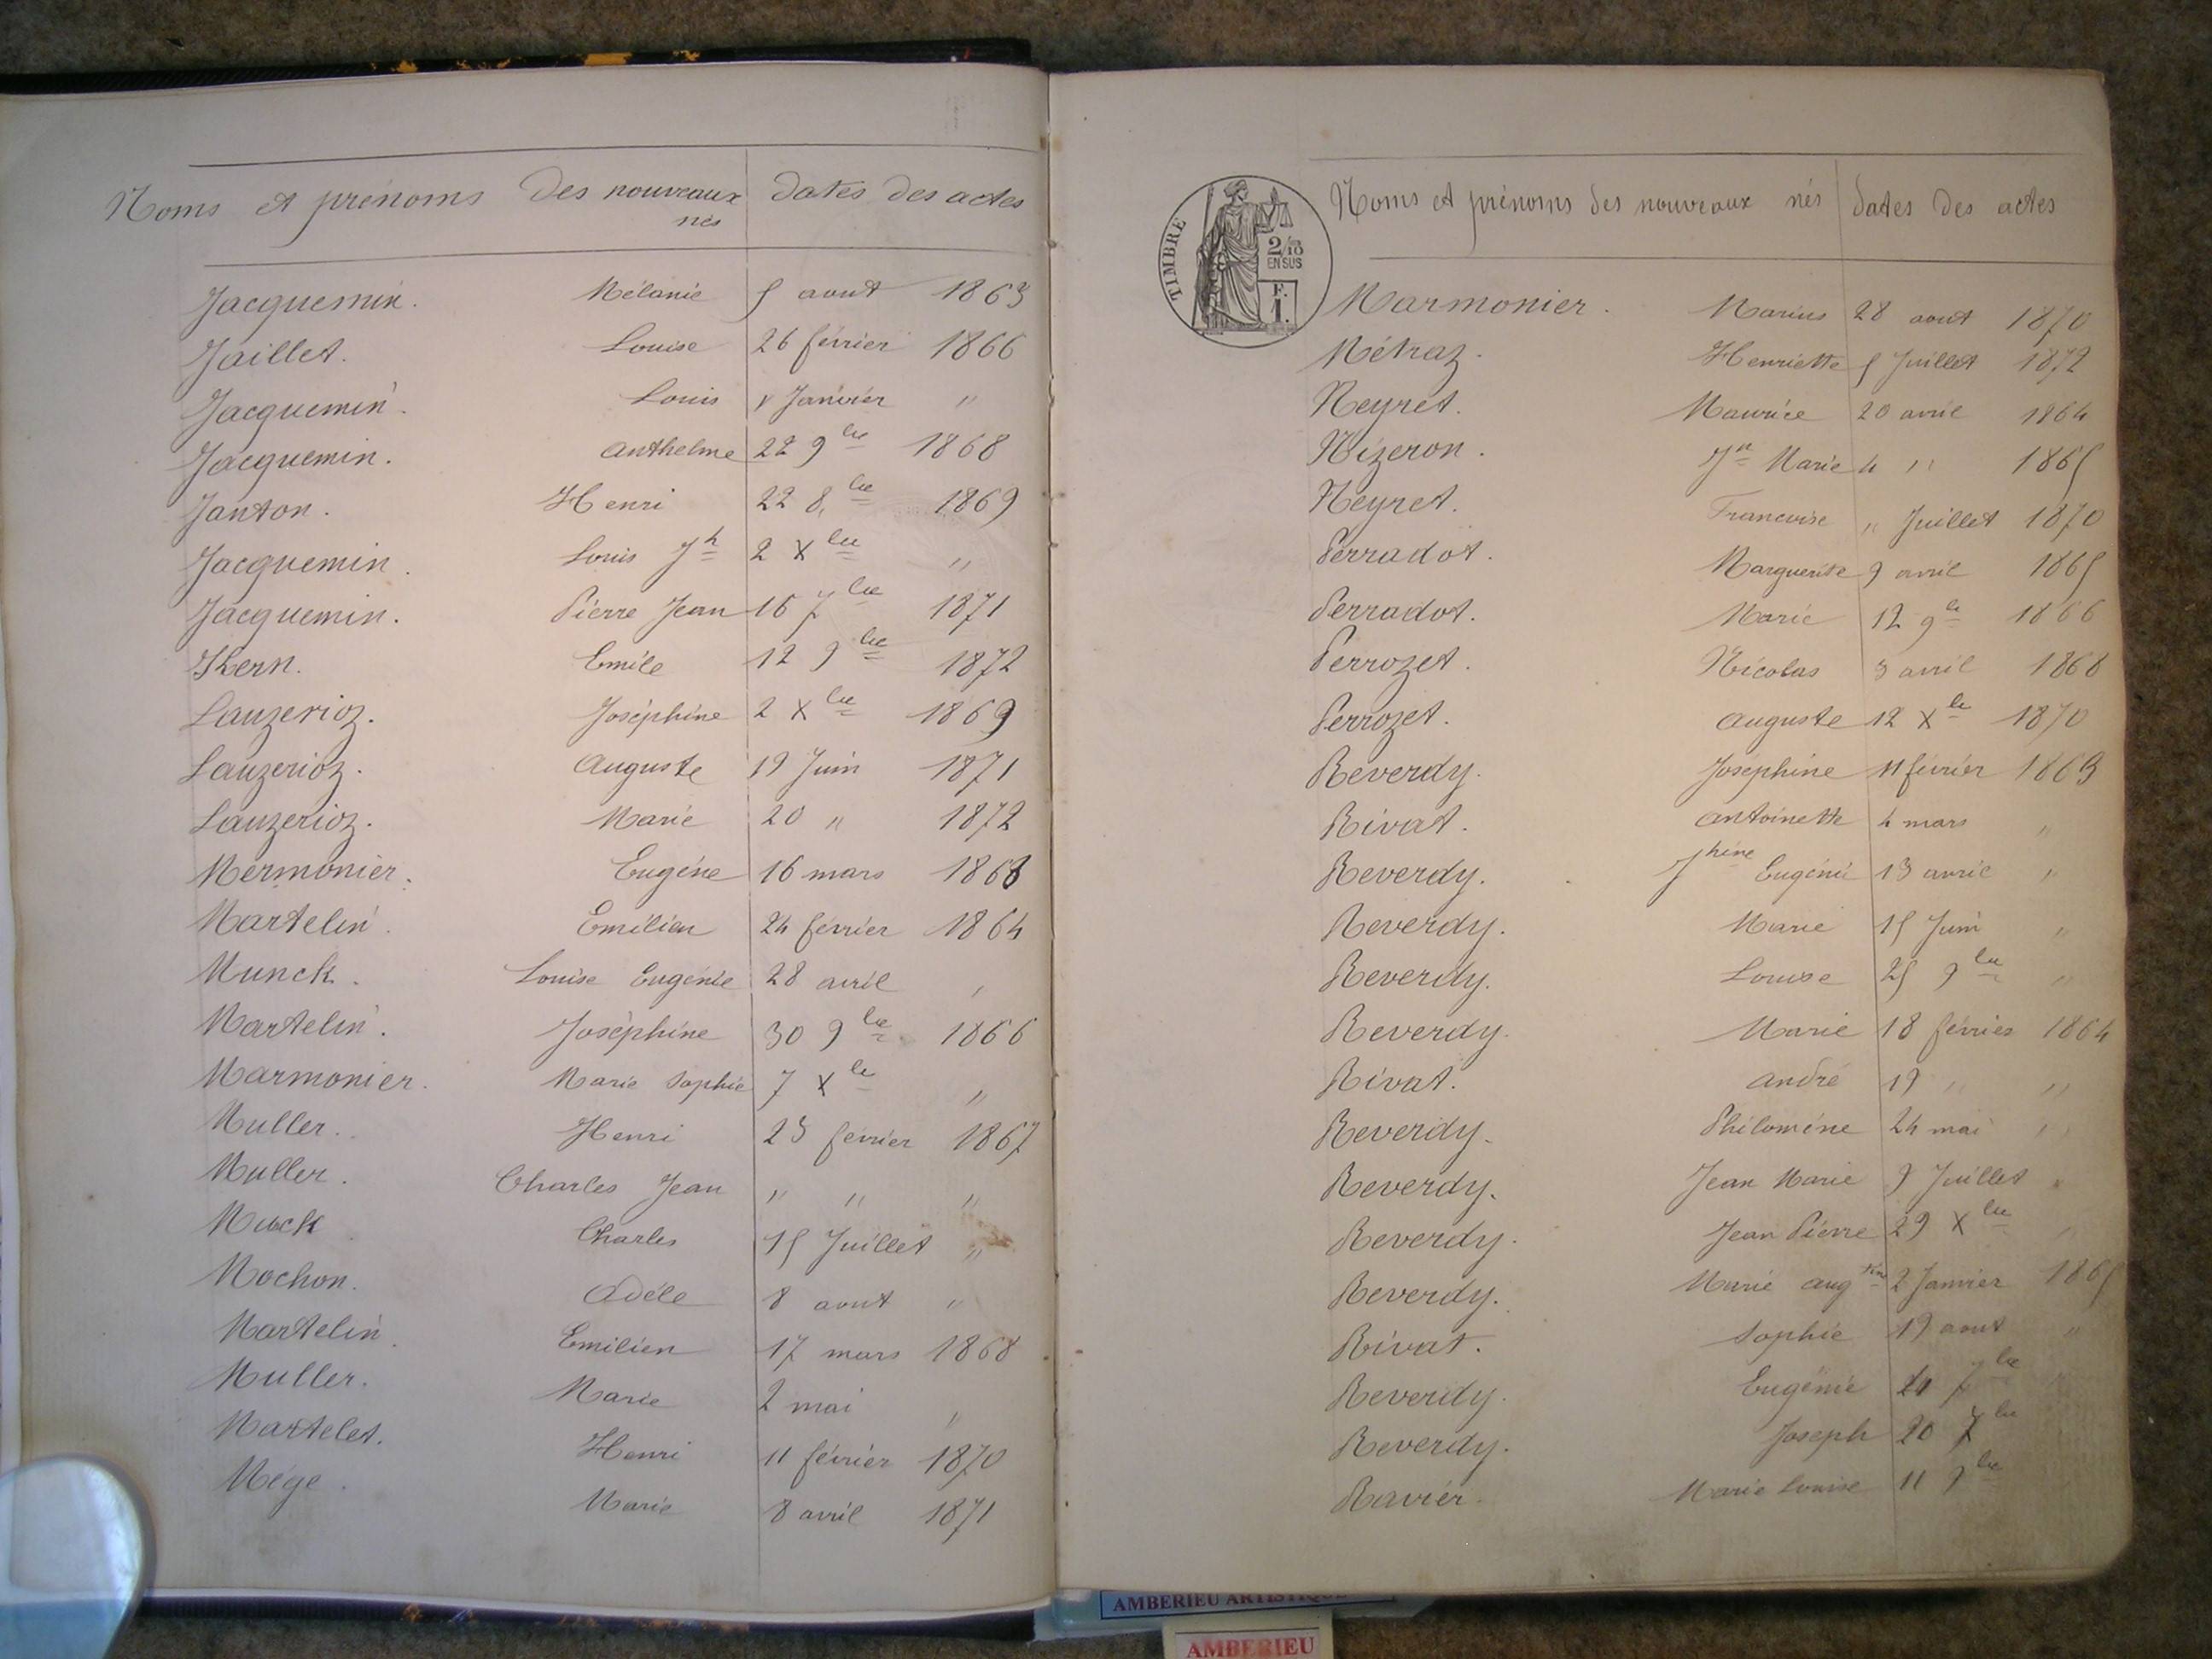 Noms et prénoms des nouveaux nés dates des actes
Jacquemin. Mélanie 5 aout 1863
Jaillet. Louise 26 février 1866
Jacquemin. Louis 1 Janvier "
Jacquemin. Anthelme 22 9bre 1868
Janton. Henri 22 8bre 1869
Jacquemin. Louis Jh 2 Xbre "
Jacquemin. Pierre Jean 16 7bre 1871
Kern. Emile 12 9bre 1872
Lauzerioz. Joséphine 2 Xbre 1869
Lauzerioz. Auguste 19 Juin 1871
Lauzerioz. Marie 20 " 1872
Mermonier. Eugéne 16 mars 1863
Martelin. Emilien 24 février 1864
Munck. Louise Eugénie 28 avril "
Martelin. Joséphine 30 9bre 1866
Marmonier. Marie Sophie 7 Xbre "
Muller. Henri 23 février 1867
Muller. Charles Jean " " "
Charles 15 Juillet "
Mochon. Adéle 8 aout "
Martelin. Emilien 17 mars 1868
Muller. Marie 2 mai "
Martelet. Henri 11 février 1870
Mége. Marie 8 avril 1871
TIMBRE
2/10
EN SUS
F.
1.
Noms et prénoms des nouveaux nés dates des actes
Marmonier. Marius 28 aout 1870
Métraz. Henriette 5 Juillet 1872
Neyret. Maurice 20 avril 1864
Nizeron. Jn Marie 4 " 1865
Neyret. Francoise " Juillet 1870
Perradot. Marguerite 9 avril 1865
Perradot. Marie 12 9bre 1866
Perrozet. Nicolas 3 avril 1868
Perrozet. Auguste 12 Xbre 1870
Reverdy. Joséphine 11 février 1863
Rivat. Antoinette 4 mars "
Reverdy. Jhine Eugénie 13 avril "
Reverdy. Marie 15 Juin "
Reverdy. Louise 25 9bre "
Reverdy. Marie 18 février 1864
Rivat. André 19 " "
Reverdy. Philoméne 24 mai "
Reverdy. Jean Marie 9 Juillet "
Reverdy. Jean Pierre 29 Xbre "
Reverdy. Marie Augtine 2 Janvier 1865
Rivat. Sophie 19 aout "
Reverdy. Eugénie 7bre "
Reverdy. Joseph 20 7bre
Ravier. Marie Louise 11 9bre
AMBERIEU ARTISTIQUE
AMBERIEU